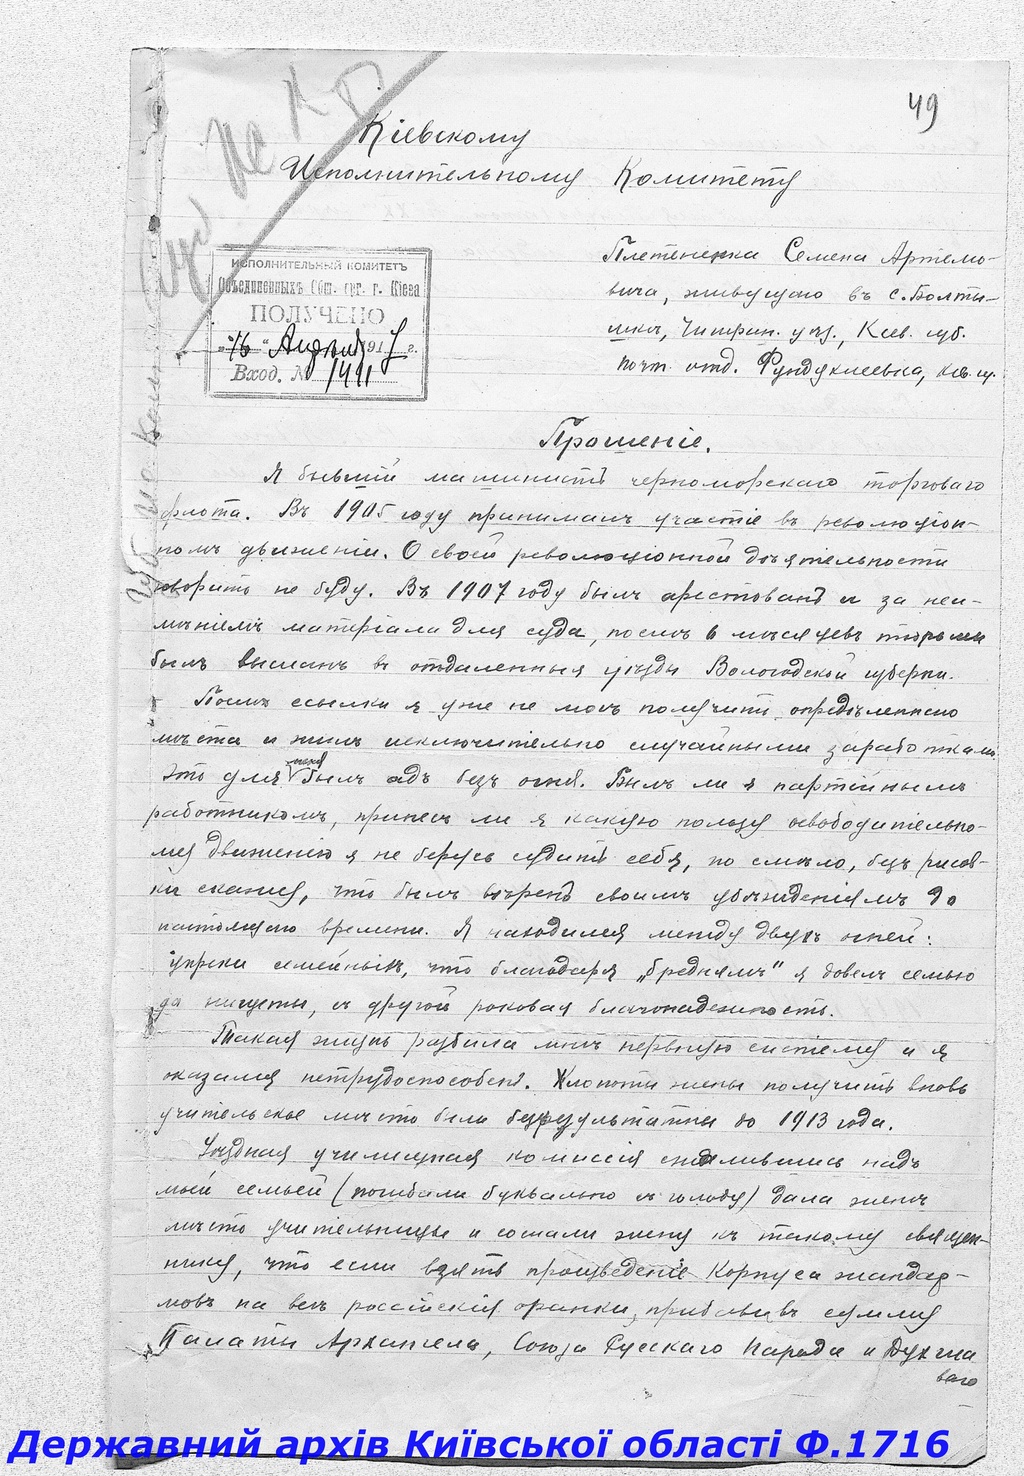 49
Кіевскому
Исполнительному Комитету
Плетененка Семена Артемо-
вича, живущаго въ с. Болты-
шкѣ, Чигирин. уѣз., Кіев. губ.
почт. отд. Фундуклеевка, кіев. гу.
ИСПОЛНИТЕЛЬНЫЙ КОМИТЕТЪ
Объединенныхъ Общ. орг. г. Кіева
ПОЛУЧЕНО
„16“ Апрѣля 1917 г.
Вход. № 1411
Прошеніе.
Я бывшій машинистъ черноморскаго торговаго
флота. Въ 1905 году принималъ участіе въ революціон-
номъ движеніи. О своей революціонной дѣятельности
говорить не буду. Въ 1907 году былъ арестованъ и за неи-
мѣніемъ матеріала для суда, послѣ 6 мѣсяцевъ тюрьмы
былъ высланъ въ отдаленныя уѣзды Вологодской губерніи.
Послѣ ссылки я уже не могъ получить опредѣленнаго
мѣста и жилъ исключительно случайными заработками.
Это для меня былъ адъ безъ огня. Былъ ли я партійнымъ
работникомъ, принесъ ли я какую пользу освободительно-
му движенію я не берусь судить себя, но смѣло, безъ рисов-
ки скажу, что былъ вѣренъ своимъ убѣжденіямъ до
настоящаго времени. Я находился между двухъ огней:
упреки семейныхъ, что благодаря „бреднямъ“ я довелъ семью
до нищеты, а съ другой роковая благонадежность.
Такая жизнь разбила мнѣ нервную систему и я
оказался нетрудоспособенъ. Хлопоты жены получить вновь
учительское мѣсто были безрезультатны до 1913 года.
Уѣздная училищная комиссія сжалившись надъ
моей семьей (погибали буквально съ голоду) дала женѣ
мѣсто учительницы и сослали жену къ такому священ-
нику, что если взять произведеніе Корпуса жандар-
мовъ на всѣ россійскія охранки, прибавивъ сумму
Палаты Архангела, Союза Русскаго Народа и Духна
ваго
Державний архів Київської області Ф.1716